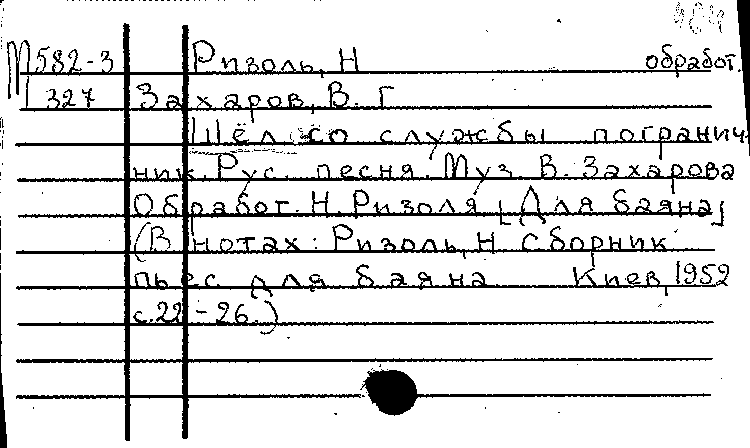 484
М582-3 Ризоль, Н обработ.
327 Захаров, В. Г
Шёл со службы погранич-
ник. Рус. песня. Муз. В. Захарова
Обработ. Н. Ризоля [Для баяна]
(В нотах: Ризоль, Н Сборник
пьес для баяна Киев, 1952
с. 22-26.)